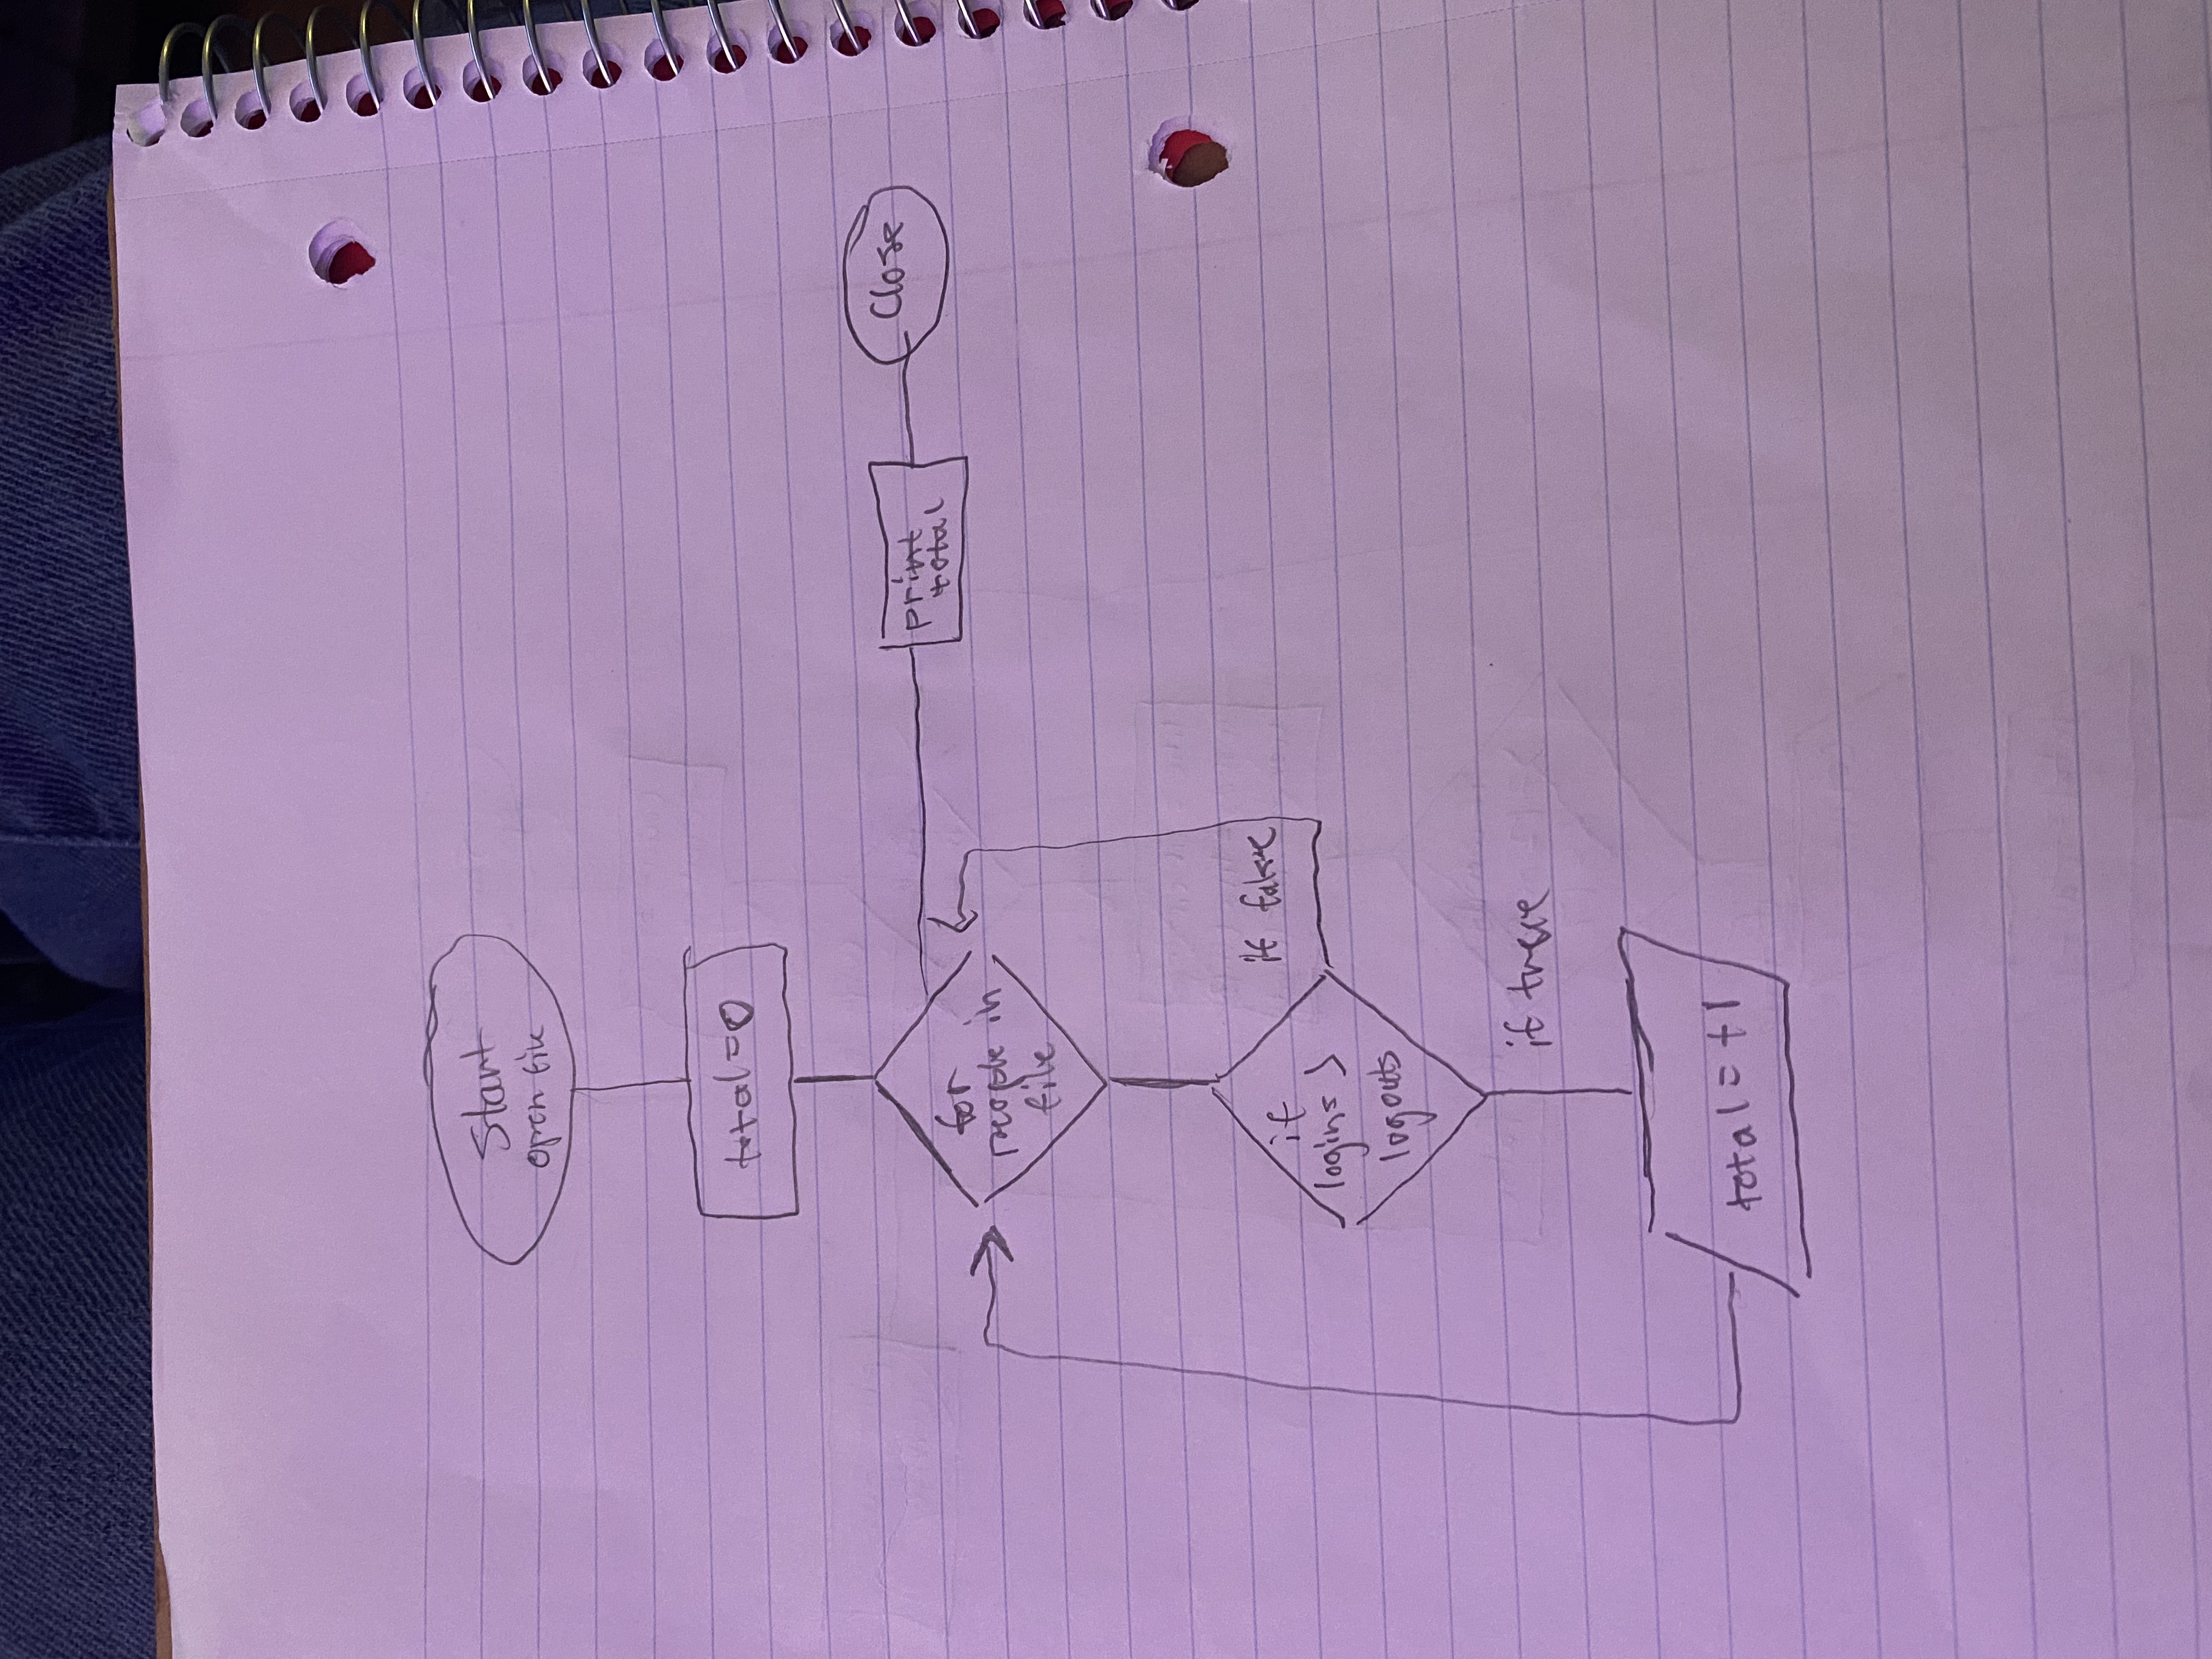 Start
open file
total = 0
for
people in
file
print
total
Close
if
logins >
logouts
if false
if true
total = +1